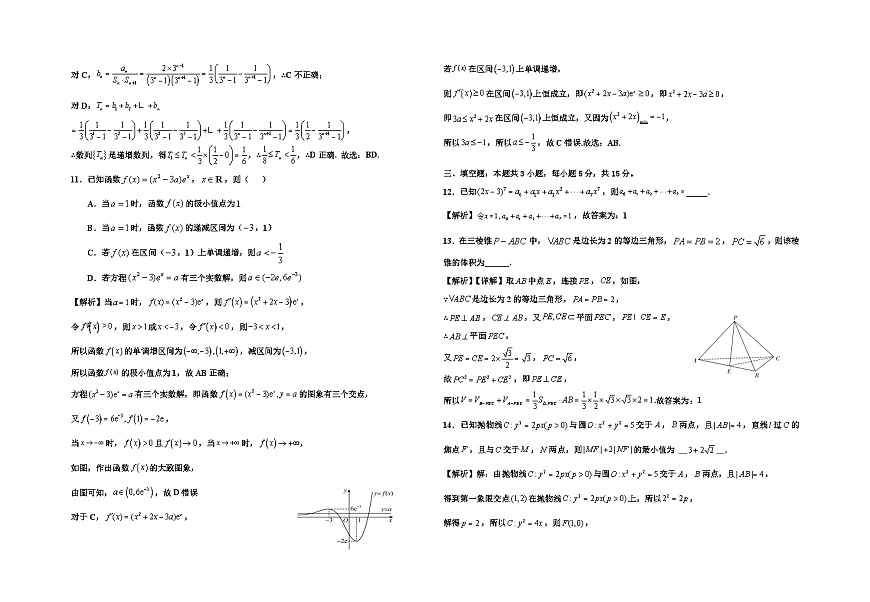 对 C，$b_n=\frac{a_n}{S_n \cdot S_{n+1}}=\frac{2\times 3^{n-1}}{(3^n-1)(3^{n+1}-1)}=\frac{1}{3}\left(\frac{1}{3^n-1}-\frac{1}{3^{n+1}-1}\right)$，∴C 不正确;
对 D，$T_n=b_1+b_2+L+b_n$
$=\frac{1}{3}\left(\frac{1}{3^1-1}-\frac{1}{3^2-1}\right)+\frac{1}{3}\left(\frac{1}{3^2-1}-\frac{1}{3^3-1}\right)+L+\frac{1}{3}\left(\frac{1}{3^n-1}-\frac{1}{3^{n+1}-1}\right)=\frac{1}{3}\left(\frac{1}{2}-\frac{1}{3^{n+1}-1}\right)$，
∴数列$\{T_n\}$是递增数列，得$T_1\le T_n<\frac{1}{3}\times\left(\frac{1}{2}-0\right)=\frac{1}{6}$，∴$\frac{1}{8}\le T_n<\frac{1}{6}$，∴D 正确. 故选：BD.
11. 已知函数 $f(x)=(x^2-3a)e^x$，$x\in\mathbf{R}$，则（ ）
A．当$a=1$时，函数$f(x)$的极小值点为1
B．当$a=1$时，函数$f(x)$的递减区间为（−3，1）
C．若$f(x)$在区间（−3，1）上单调递增，则$a<-\frac{1}{3}$
D．若方程$(x^2-3)e^x=a$有三个实数解，则$a\in(-2e,6e^{-3})$
【解析】当$a=1$时，$f(x)=(x^2-3)e^x$，则$f'(x)=(x^2+2x-3)e^x$，
令$f'(x)>0$，则$x>1$或$x<-3$，令$f'(x)<0$，则$-3<x<1$，
所以函数$f(x)$的单调增区间为$(-\infty,-3),(1,+\infty)$，减区间为$(-3,1)$，
所以函数$f(x)$的极小值点为1，故 AB 正确;
方程$(x^2-3)e^x=a$有三个实数解，即函数$f(x)=(x^2-3)e^x,y=a$的图象有三个交点，
又$f(-3)=6e^{-3},f(1)=-2e$，
当$x\to-\infty$时，$f(x)>0$且$f(x)\to 0$，当$x\to+\infty$时，$f(x)\to+\infty$，
如图，作出函数$f(x)$的大致图象，
由图可知，$a\in(0,6e^{-3})$，故 D 错误
对于 C，$f'(x)=(x^2+2x-3a)e^x$，
y
y=f(x)
6e⁻³
y=a
−3
O
1
x
−2e
若$f(x)$在区间$(-3,1)$上单调递增，
则$f'(x)\ge 0$在区间$(-3,1)$上恒成立，即$(x^2+2x-3a)e^x\ge 0$，即$x^2+2x-3a\ge 0$，
即$3a\le x^2+2x$在区间$(-3,1)$上恒成立，又因为$(x^2+2x)_{min}=-1$，
所以$3a\le -1$，所以$a\le-\frac{1}{3}$，故 C 错误.故选：AB.
三．填空题：本题共 3 小题，每小题 5 分，共 15 分。
12. 已知$(2x-3)^7=a_0+a_1x+a_2x^2+\cdots+a_7x^7$，则$a_0+a_1+a_2+\cdots+a_7=$_____.
【解析】令$x=1,a_0+a_1+a_2+\cdots+a_7=-1$，故答案为：1
13. 在三棱锥$P-ABC$中，$\vee ABC$是边长为 2 的等边三角形，$PA=PB=2$，$PC=\sqrt{6}$，则该棱
锥的体积为______.
【解析】【详解】取$AB$中点$E$，连接$PE$，$CE$，如图，
∵$\vee ABC$是边长为 2 的等边三角形，$PA=PB=2$，
∴$PE\perp AB$，$CE\perp AB$，又$PE,CE\subset$平面$PEC$，$PE\mid CE=E$，
∴$AB\perp$平面$PEC$，
又$PE=CE=2\times\frac{\sqrt{3}}{2}=\sqrt{3}$，$PC=\sqrt{6}$，
故$PC^2=PE^2+CE^2$，即$PE\perp CE$，
所以$V=V_{B-PEC}+V_{A-PEC}=\frac{1}{3}S_{\triangle PEC}\cdot AB=\frac{1}{3}\times\frac{1}{2}\times\sqrt{3}\times\sqrt{3}\times 2=1$.故答案为：1
P
A
C
E
B
14．已知抛物线$C:y^2=2px(p>0)$与圆$O:x^2+y^2=5$交于$A$，$B$两点，且$|AB|=4$，直线$l$过$C$的
焦点$F$，且与$C$交于$M$，$N$两点，则$|MF|+2|NF|$的最小值为 __$3+2\sqrt{2}$__.
【解析】解：由抛物线$C:y^2=2px(p>0)$与圆$O:x^2+y^2=5$交于$A$，$B$两点，且$|AB|=4$，
得到第一象限交点$(1,2)$在抛物线$C:y^2=2px(p>0)$上，所以$2^2=2p$，
解得$p=2$，所以$C:y^2=4x$，则$F(1,0)$，